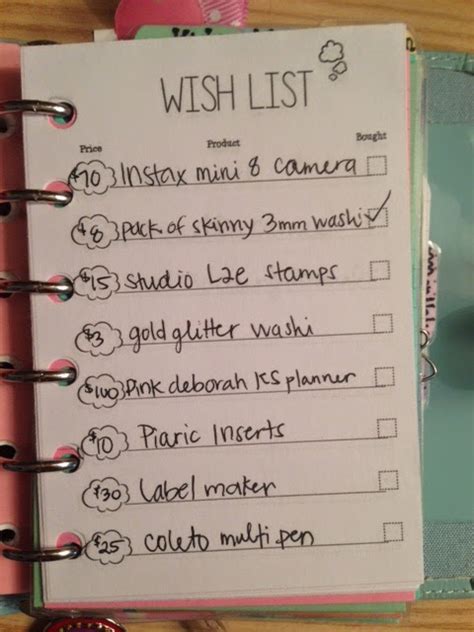 WISH LIST
Price Product Bought
$70 Instax mini 8 camera
$8 pack of skinny 3mm washi
$15 studio L2e stamps
$3 gold glitter washi
$100 Pink deborah KS planner
$10 Piaric Inserts
$30 Label maker
$25 coleto multi pen